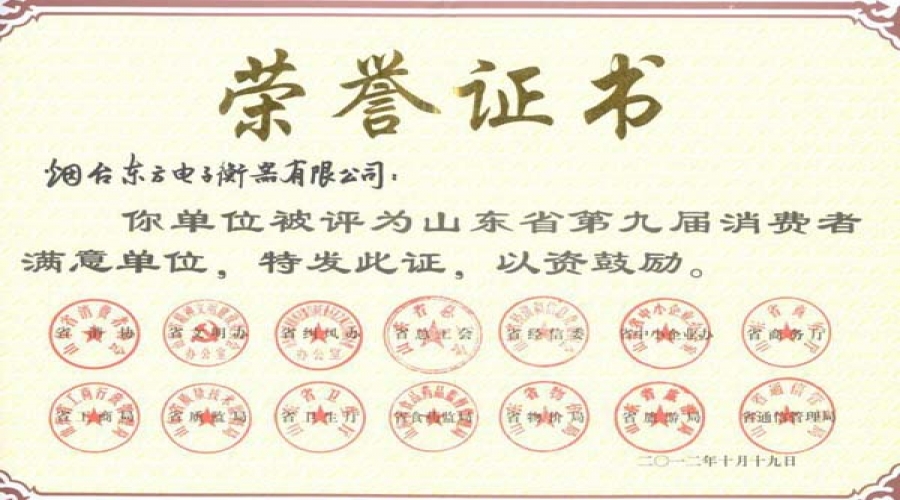 荣誉证书
烟台东方电子衡器有限公司:
你单位被评为山东省第九届消费者
满意单位，特发此证，以资鼓励。
省消协 省文明办 省纠风办 省总工会 省经信委 省中小企业办 省商务厅
省工商局 省质监局 省卫生厅 省食药监局 省物价局 省旅游局 省通信管理局
二〇一二年十月十九日